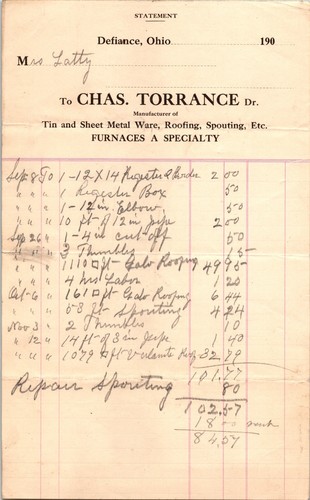 STATEMENT
Defiance, Ohio 190
Mrs Latty
To CHAS. TORRANCE Dr.
Manufacturer of
Tin and Sheet Metal Ware, Roofing, Spouting, Etc.
FURNACES A SPECIALTY
Sep 8 To 1-12 X 14 Register & Border 2 00
" " " 1 Register Box 50
" " " 1-12 in. Elbow 50
" " " 10 ft of 12 in pipe 2 00
Sep 26 " 1-4 in cut off 50
" " " 3 Thimbles 15
" " " 1110 □ ft Galv Roofing 49 95
" " " 4 hrs Labor 1 20
Oct 6 " 161 □ ft Galv Roofing 6 44
" " " 53 ft Spouting 4 24
Nov 3 " 2 Thimbles 10
" 12 " 14 ft of 3 in pipe 1 40
" " " 1079 □ ft Vulcanite Rfg 32.79
101.77
Repair Spouting 80
102.57
18 00
84.57